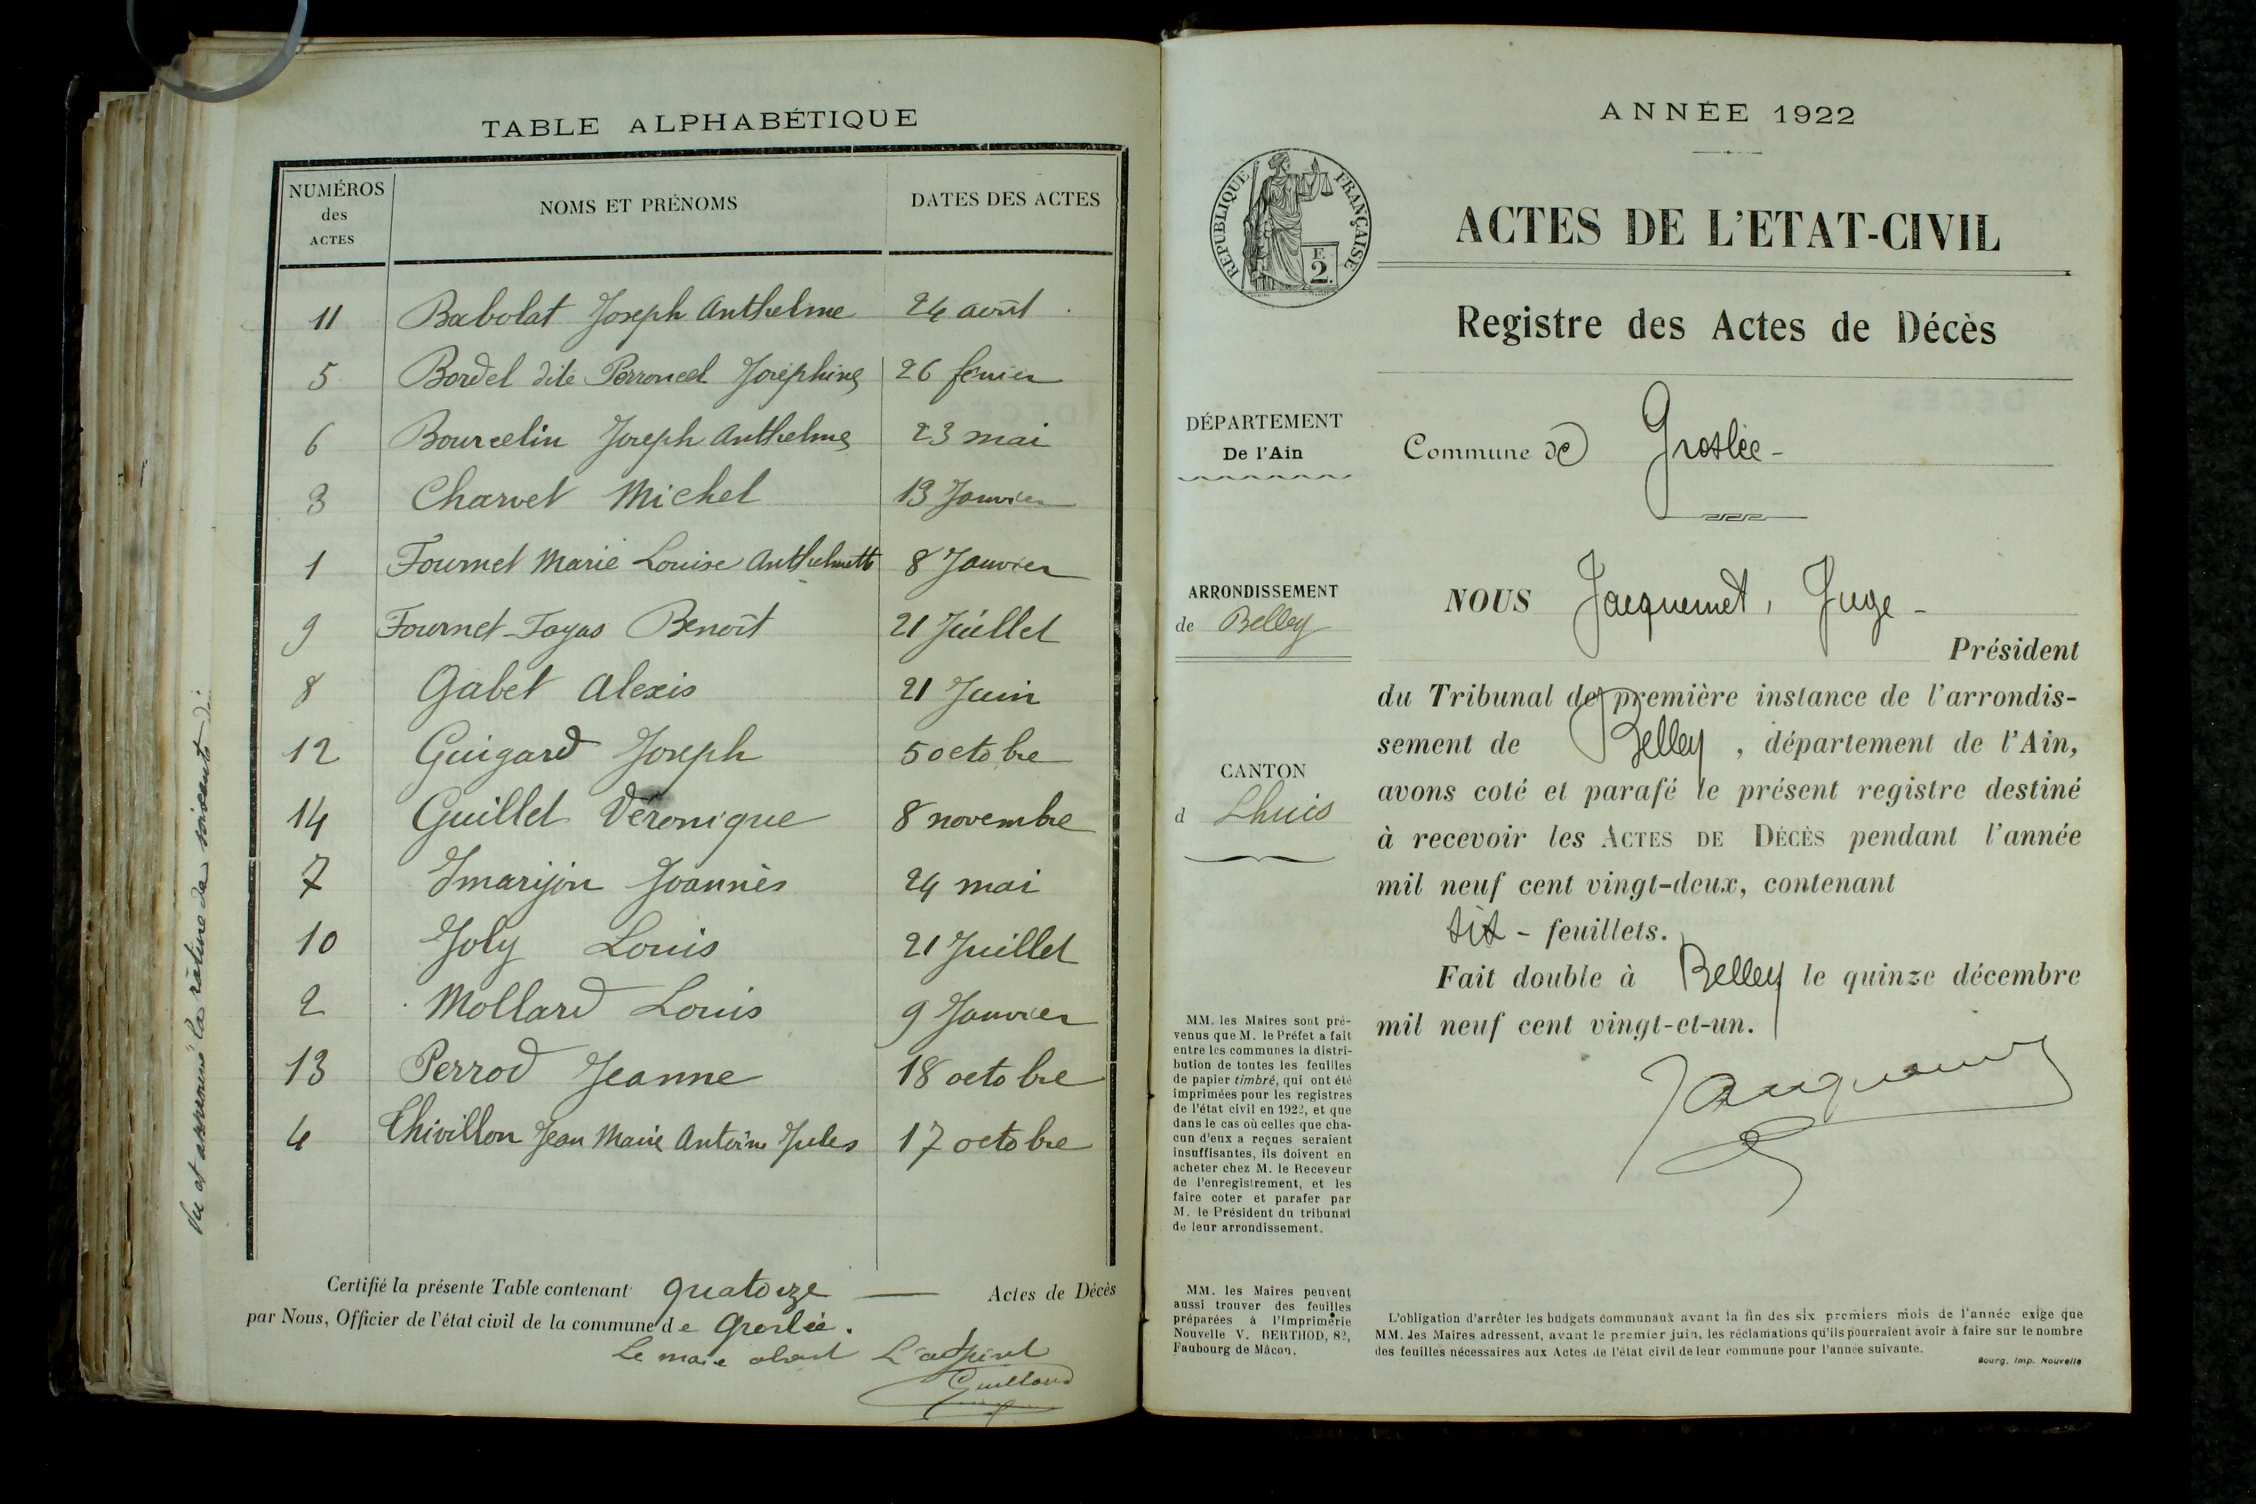 TABLE ALPHABÉTIQUE
NUMÉROS
des
ACTES
NOMS ET PRÉNOMS
DATES DES ACTES
11 Babolat Joseph Anthelme 24 août
5 Bordel dite Perroncel Joséphine 26 fevrier
6 Bourcelin Joseph Anthelme 23 mai
3 Charvet Michel 13 Janvier
1 Fournet Marie Louise Anthelmette 8 Janvier
9 Fournet-Fayas Benoît 21 Juillet
8 Gabet Alexis 21 Juin
12 Guigard Joseph 5 octobre
14 Guillet Véronique 8 novembre
7 Imarijon Joannès 24 mai
10 Joly Louis 21 Juillet
2 Mollard Louis 9 Janvier
13 Perrod Jeanne 18 octobre
4 Thivillon Jean Marie Antoine Jules 17 octobre
Certifié la présente Table contenant quatorze — Actes de Décès
par Nous, Officier de l'état civil de la commune de Groslée.
Le maire absent L'adjoint
Guilland
Vu et approuvé la rature de
ANNÉE 1922
RÉPUBLIQUE FRANÇAISE
F.
2.
ACTES DE L'ETAT-CIVIL
Registre des Actes de Décès
DÉPARTEMENT
De l'Ain
Commune de Groslée -
ARRONDISSEMENT
de Belley
CANTON
d Lhuis
NOUS Jacquemet, Juge -
Président
du Tribunal de première instance de l'arrondis-
sement de Belley, département de l'Ain,
avons coté et parafé le présent registre destiné
à recevoir les ACTES DE DÉCÈS pendant l'année
mil neuf cent vingt-deux, contenant
six - feuillets.
Fait double à Belley le quinze décembre
mil neuf cent vingt-et-un.
Jacquemet
MM. les Maires sont pré-
venus que M. le Préfet a fait
entre les communes la distri-
bution de toutes les feuilles
de papier timbré, qui ont été
imprimées pour les registres
de l'état civil en 1922, et que
dans le cas où celles que cha-
cun d'eux a reçues seraient
insuffisantes, ils doivent en
acheter chez M. le Receveur
de l'enregistrement, et les
faire coter et parafer par
M. le Président du tribunal
de leur arrondissement.
MM. les Maires peuvent
aussi trouver des feuilles
préparées à l'Imprimerie
Nouvelle V. BERTHOD, 82,
Faubourg de Mâcon.
L'obligation d'arrêter les budgets communaux avant la fin des six premiers mois de l'année exige que
MM. les Maires adressent, avant le premier juin, les réclamations qu'ils pourraient avoir à faire sur le nombre
des feuilles nécessaires aux Actes de l'état civil de leur commune pour l'année suivante.
Bourg. Imp. Nouvelle